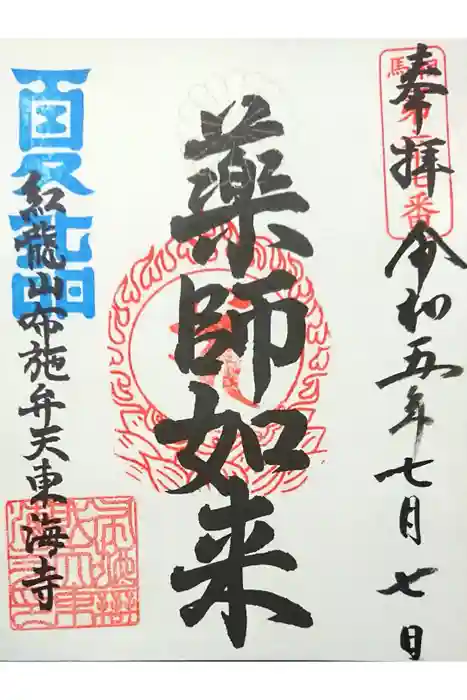 奉拝 令和五年七月七日
薬師如来
紅龍山布施弁天東海寺